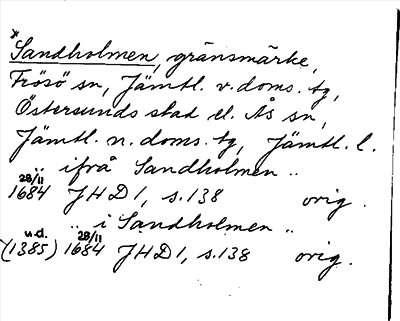 *Sandholmen, gränsmärke,
Frösö sn, Jämtl. v. doms. tg,
Östersunds stad el. Ås sn,
Jämtl. n. doms. tg, Jämtl. l.
.. ifrå Sandholmen ..
28/11
1684 JHD 1, s. 138 orig.
.. i Sandholmen ..
u.d. 28/11
(1385) 1684 JHD 1, s. 138 orig.